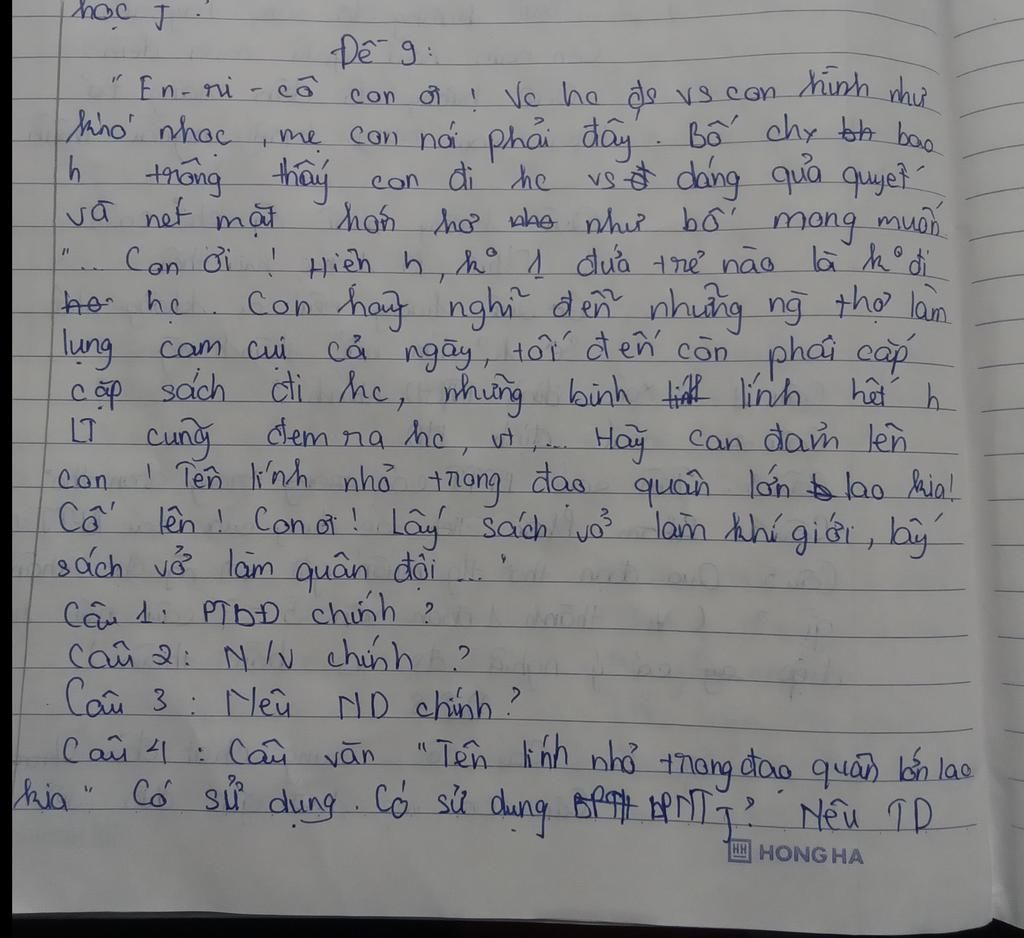 học J.
Đề 9:
"En-ri-cô con ơi! Vc hc đs vs con hình như
khó nhọc, mẹ con nói phải đấy. Bố chx bao
h trông thấy con đi hc vs dáng quả quyết
và nét mặt hớn hở như bố mong muốn
"... Con ơi! Hiện h, k° 1 đứa trẻ nào là k° đi
hc. Con hãy nghĩ đến những ng thợ làm
lụng cam cụi cả ngày, tối đến còn phải cắp
cặp sách đi hc, những binh lính hết h
LT cũng đem ra hc, vt,... Hãy can đảm lên
con! Tên lính nhỏ trong đạo quân lớn lao kia!
Cố lên! Con ơi! Lấy sách vở làm khí giới, lấy
sách vở làm quân đội..."
Câu 1: PTDĐ chính?
Câu 2: N/V chính?
Câu 3: Nêu ND chính?
Câu 4: Câu văn "Tên lính nhỏ trong đạo quân lớn lao
kia" Có sử dụng. Có sử dụng BPNT J? Nêu TD
HH HONG HA